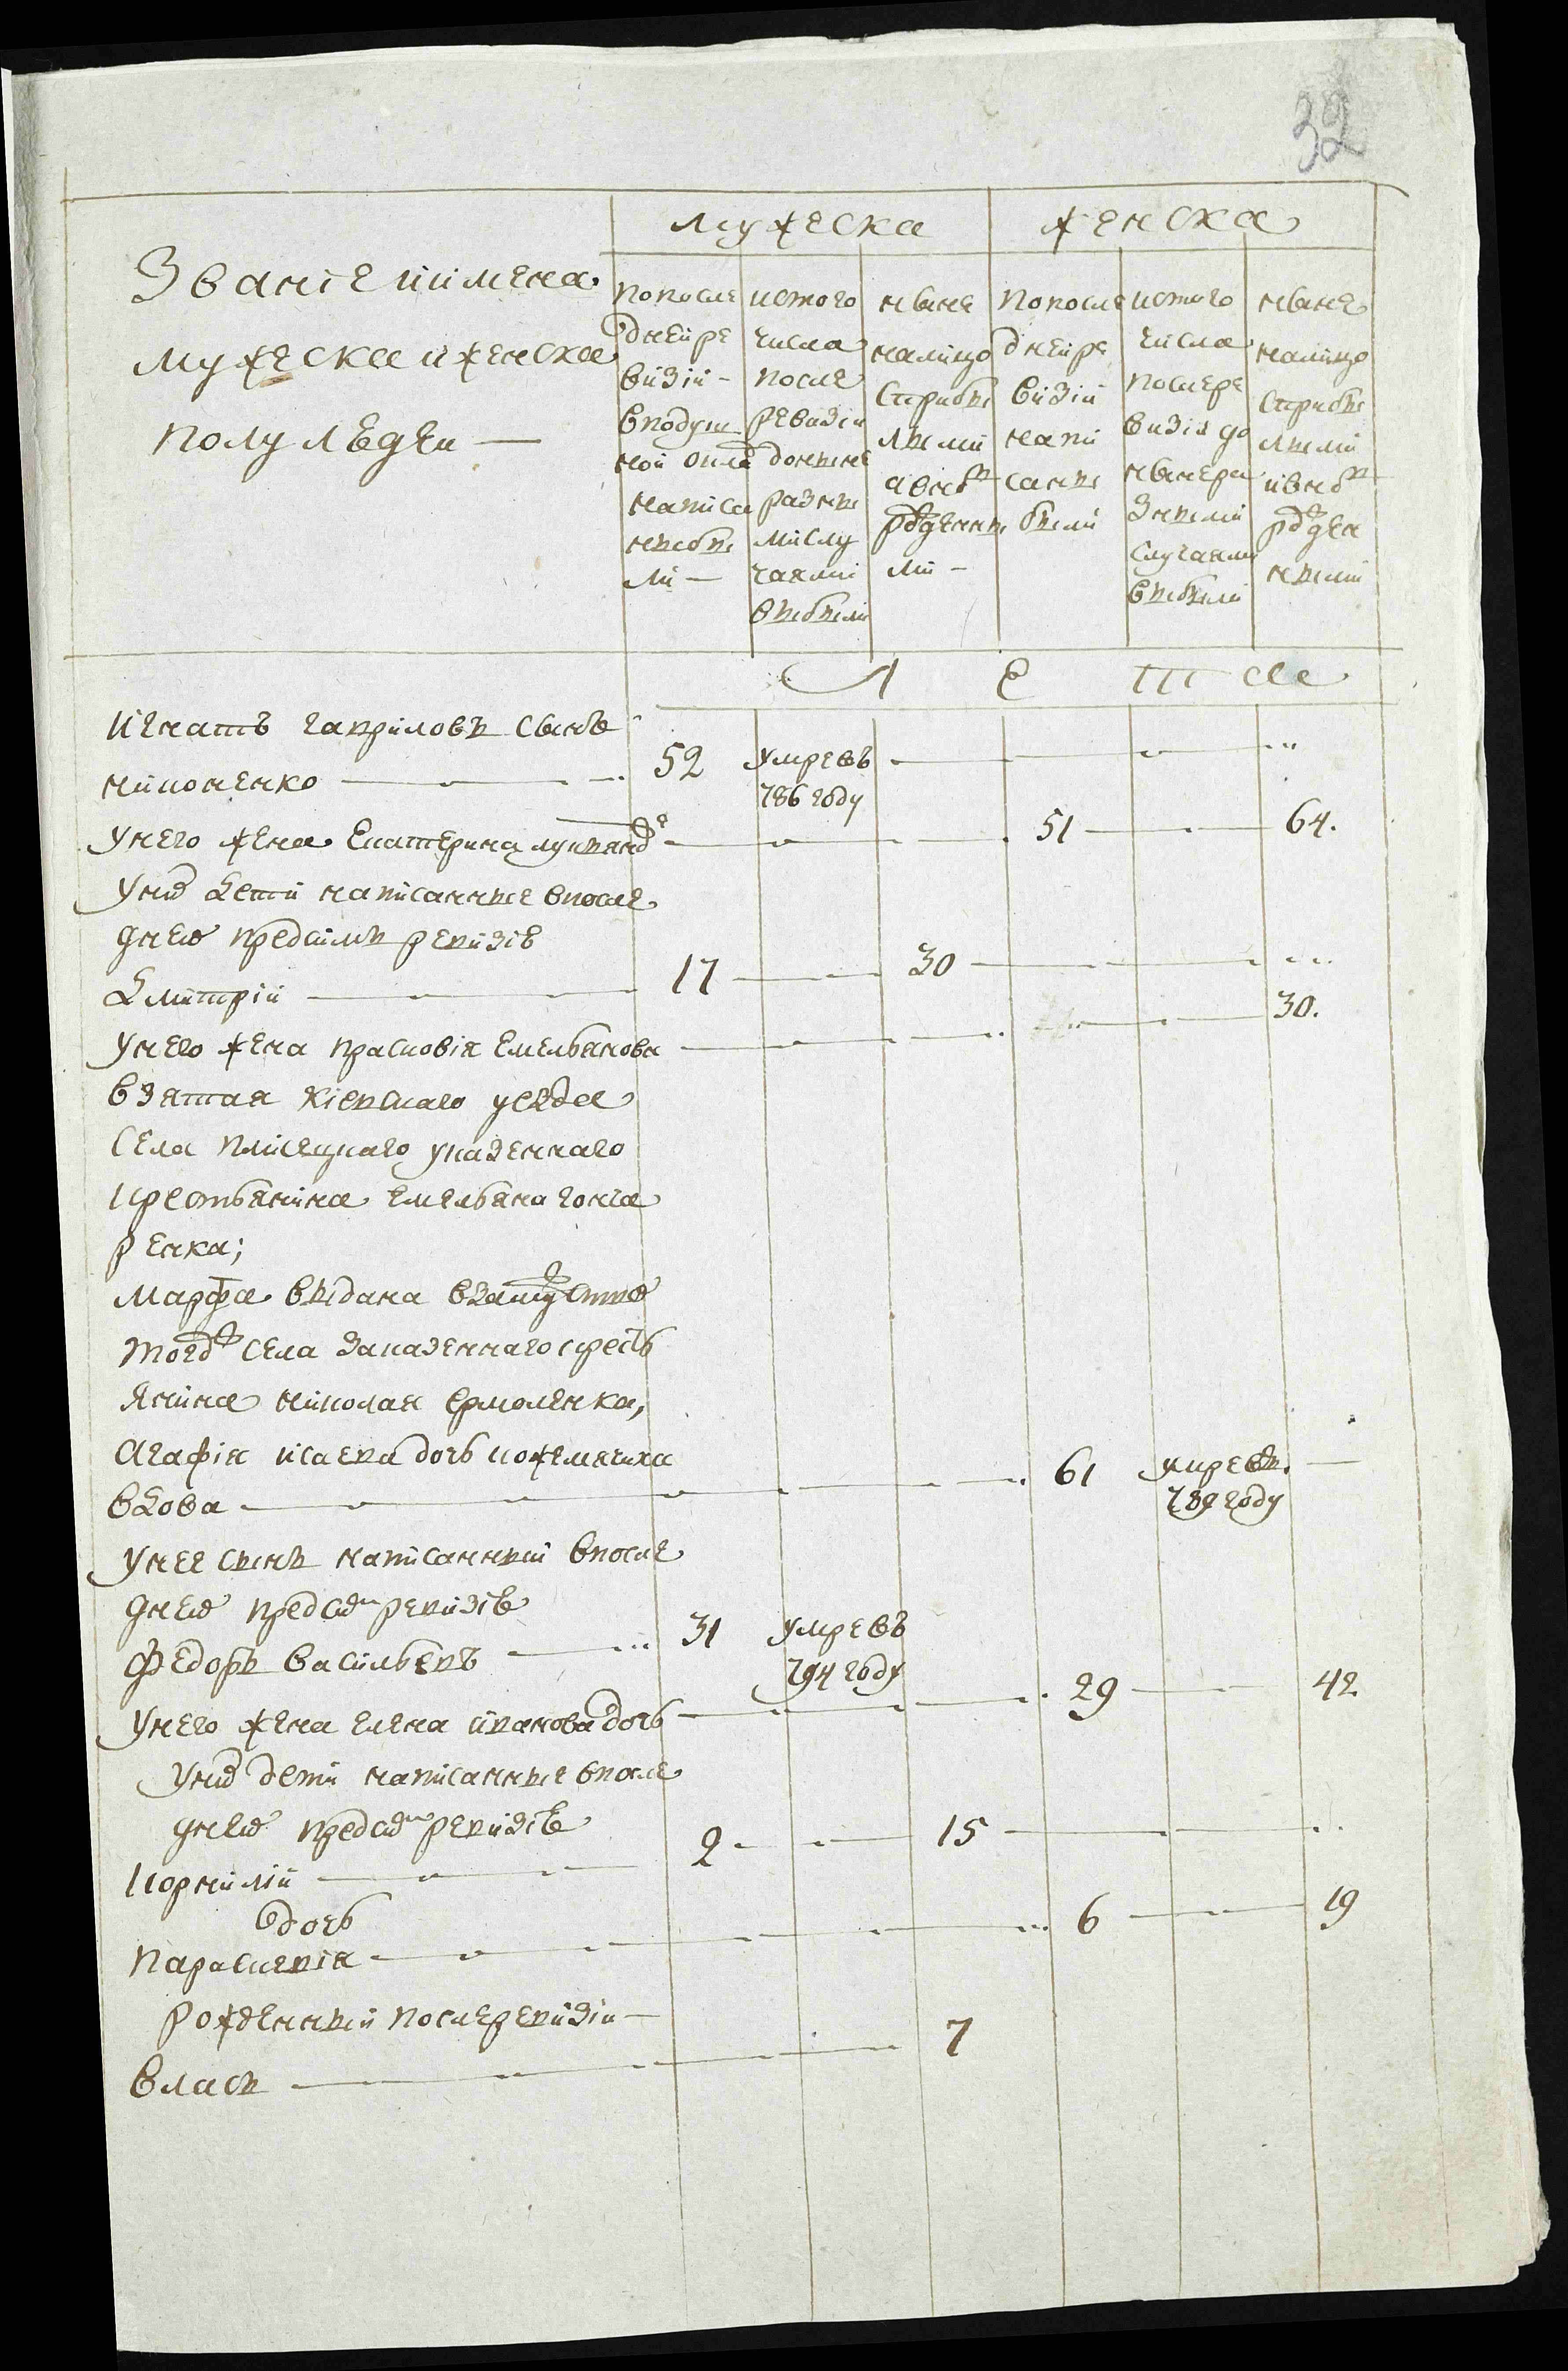 32
мужеска женска
Званїе иимена
мужеска иженска
полу людеи —
попосле
дней ре
визїи -
вподуш
ной окла
написа
ныебы
ли —
истого
числа
после
ревизїи
доныне
разны
мислу
чаями
выбыли
ныне
налицо
сприбы
лыми
ивнов
рожденны
ми -
попосле
дней ре
визїи
напи
саны
были
истого
числа
послере
визїи до
нынера
зными
случаями
выбыли
ныне
налицо
сприбы
лыми
ивнов
рожден
ными
Л Е Т А
Игнатъ гавриловъ сынъ
никоненко — 52 умревъ
786 году
унего жена Екатерина — 51 — 64.
Уних дети написанные впосле
днею предсимъ ревизїю
Дмитрїй — 17 — 30 —
унего жена прасковїя Емельянова — 30.
взятая кїевскаго уезда
села плисецкаго указеннаго
крестьянина емельяна гонча
ренка;
марфа выдана взамужство
тогож села заказеннаго кресть
янина николая Ермоленка,
Агафїя исаева дочь кожемячиха
вдова — 61 умревъ. —
789 году
унее сынъ написанный впосле
днею предсим ревизїю
Федоръ васильевъ — 31 умревъ
794 году
унего жена елена иванова дочь — 29 — 42
уних дети написанные впосле
днею предсим ревизїю
корнилїй — 2 — 15 —
дочь
параскевїя — 6 — 19
рожденный послеревизїи —
власъ — 7